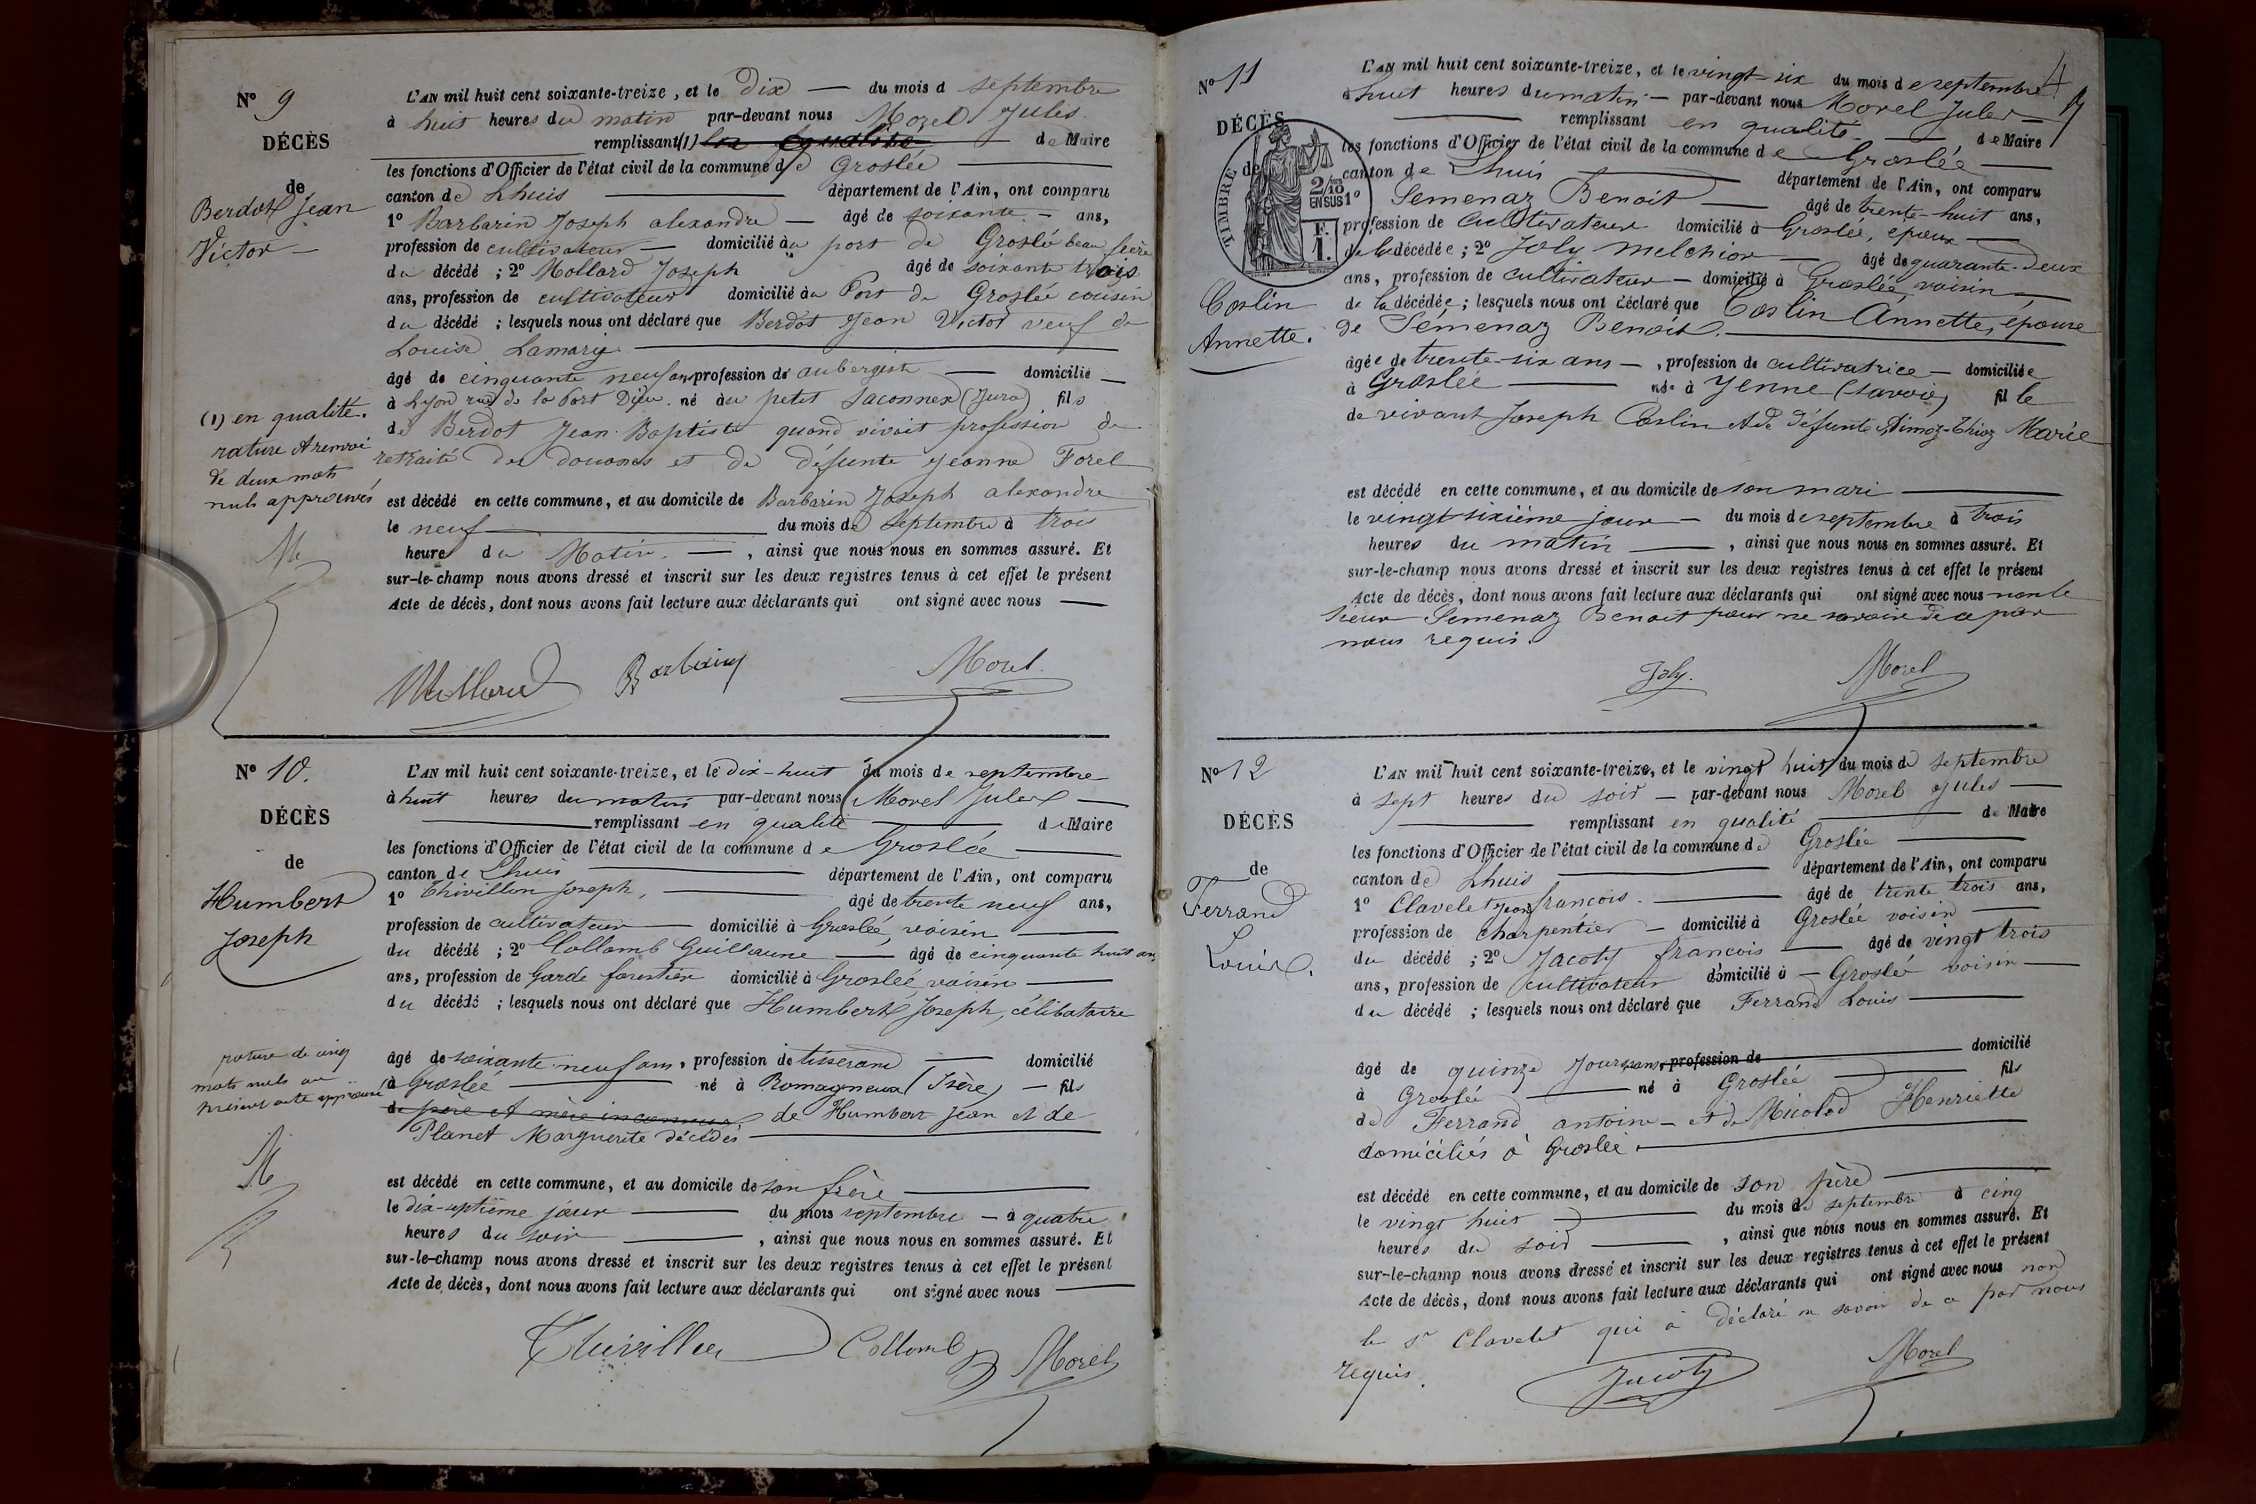 N° 9
DÉCÈS
de
Berdot Jean
Victor —
(1) en qualité.
rature et renvoi
de deux mots
nuls approuvés
M
L'AN mil huit cent soixante-treize, et le Dix — du mois d septembre
à huit heures du matin par-devant nous Morel Jules
remplissant (1) de Maire
les fonctions d'Officier de l'état civil de la commune de Groslée
canton de Lhuis département de l'Ain, ont comparu
1° Barbarin Joseph alexandre — âgé de soixante — ans,
profession de cultivateur — domicilié au port de Groslée beau frère
du décédé ; 2° Mollard Joseph âgé de soixante trois
ans, profession de cultivateur domicilié au Port de Groslée cousin
du décédé ; lesquels nous ont déclaré que Berdot Jean Victor veuf de
Louise Lamary
âgé de cinquante neuf ans profession de aubergiste — domicilié —
à Lyon rue de la Part Dieu né au petit Saconnex (Jura) fils
de Berdot Jean Baptiste quand vivait profession de
retraité des douanes et de défunte Jeanne Forel
est décédé en cette commune, et au domicile de Barbarin Joseph alexandre
le neuf du mois de septembre à trois
heures du Matin — , ainsi que nous nous en sommes assuré. Et
sur-le-champ nous avons dressé et inscrit sur les deux registres tenus à cet effet le présent
Acte de décès, dont nous avons fait lecture aux déclarants qui ont signé avec nous —
Mollard Barbarin Morel
N° 10.
DÉCÈS
de
Humbert
Joseph
rature de cinq
mots nuls au
présent acte approuvé
M
L'AN mil huit cent soixante-treize, et le dix-huit du mois de septembre
à huit heures du matin par-devant nous Morel Jules —
remplissant en qualité de Maire
les fonctions d'Officier de l'état civil de la commune de Groslée
canton de Lhuis département de l'Ain, ont comparu
1° Thivillon Joseph, âgé de trente neuf ans,
profession de cultivateur — domicilié à Groslée, voisin
du décédé ; 2° Collomb Guillaume — âgé de cinquante huit ans
ans, profession de Garde forestier domicilié à Groslée voisin
du décédé ; lesquels nous ont déclaré que Humbert Joseph, célibataire
âgé de soixante neuf ans, profession de tisserand — domicilié
à Groslée né à Romagneux (Isère) — fils
de père et mère inconnus de Humbert Jean et de
Planet Marguerite décédés
est décédé en cette commune, et au domicile de son frère
le dix-septième jour du mois septembre — à quatre
heures du soir , ainsi que nous nous en sommes assuré. Et
sur-le-champ nous avons dressé et inscrit sur les deux registres tenus à cet effet le présent
Acte de décès, dont nous avons fait lecture aux déclarants qui ont signé avec nous —
Thivillon Collomb Morel
4
N° 11
DÉCÈS
de
TIMBRE
2/10
EN SUS
F.
1.
Coslin
Annette.
L'AN mil huit cent soixante-treize, et le vingt-six du mois de septembre
à huit heures du matin — par-devant nous Morel Jules —
remplissant en qualité — de Maire
les fonctions d'Officier de l'état civil de la commune de Groslée
canton de Lhuis département de l'Ain, ont comparu
1° Semenaz Benoit — âgé de trente-huit ans,
profession de cultivateur domicilié à Groslée, époux —
de la décédée ; 2° Joly Melchior — âgé de quarante-deux
ans, profession de cultivateur — domicilié à Groslée, voisin —
de la décédée ; lesquels nous ont déclaré que Coslin Annette, épouse
de Semenaz Benoit.
âgée de trente-six ans — , profession de cultivatrice — domiciliée
à Groslée née à Yenne (Savoie) fille
de vivant Joseph Coslin et de défunte Aimoz-Thioz Marie
est décédé en cette commune, et au domicile de son mari
le vingt-sixième jour — du mois de septembre à trois
heures du matin — , ainsi que nous nous en sommes assuré. Et
sur-le-champ nous avons dressé et inscrit sur les deux registres tenus à cet effet le présent
Acte de décès, dont nous avons fait lecture aux déclarants qui ont signé avec nous non le
sieur Semenaz Benoit pour ne savoir de ce par
nous requis.
Joly. Morel
N° 12
DÉCÈS
de
Ferrand
Louis.
L'AN mil huit cent soixante-treize, et le vingt huit du mois de septembre
à sept heures du soir — par-devant nous Morel Jules —
remplissant en qualité de Maire
les fonctions d'Officier de l'état civil de la commune de Groslée
canton de Lhuis département de l'Ain, ont comparu
1° Clavelet Jean françois. âgé de trente trois ans,
profession de charpentier — domicilié à Groslée voisin —
du décédé ; 2° Jacoty françois — âgé de vingt trois
ans, profession de cultivateur domicilié à — Groslée voisin —
du décédé ; lesquels nous ont déclaré que Ferrand Louis
âgé de quinze jours ans, profession de domicilié
à Groslée né à Groslée fils
de Ferrand antoine — et de Micolod Henriette
domiciliés à Groslée
est décédé en cette commune, et au domicile de son père
le vingt huit du mois de septembre à cinq
heures du soir , ainsi que nous nous en sommes assuré. Et
sur-le-champ nous avons dressé et inscrit sur les deux registres tenus à cet effet le présent
Acte de décès, dont nous avons fait lecture aux déclarants qui ont signé avec nous non
le sr Clavelet qui a déclaré ne savoir de ce par nous
requis.
Jacoty Morel